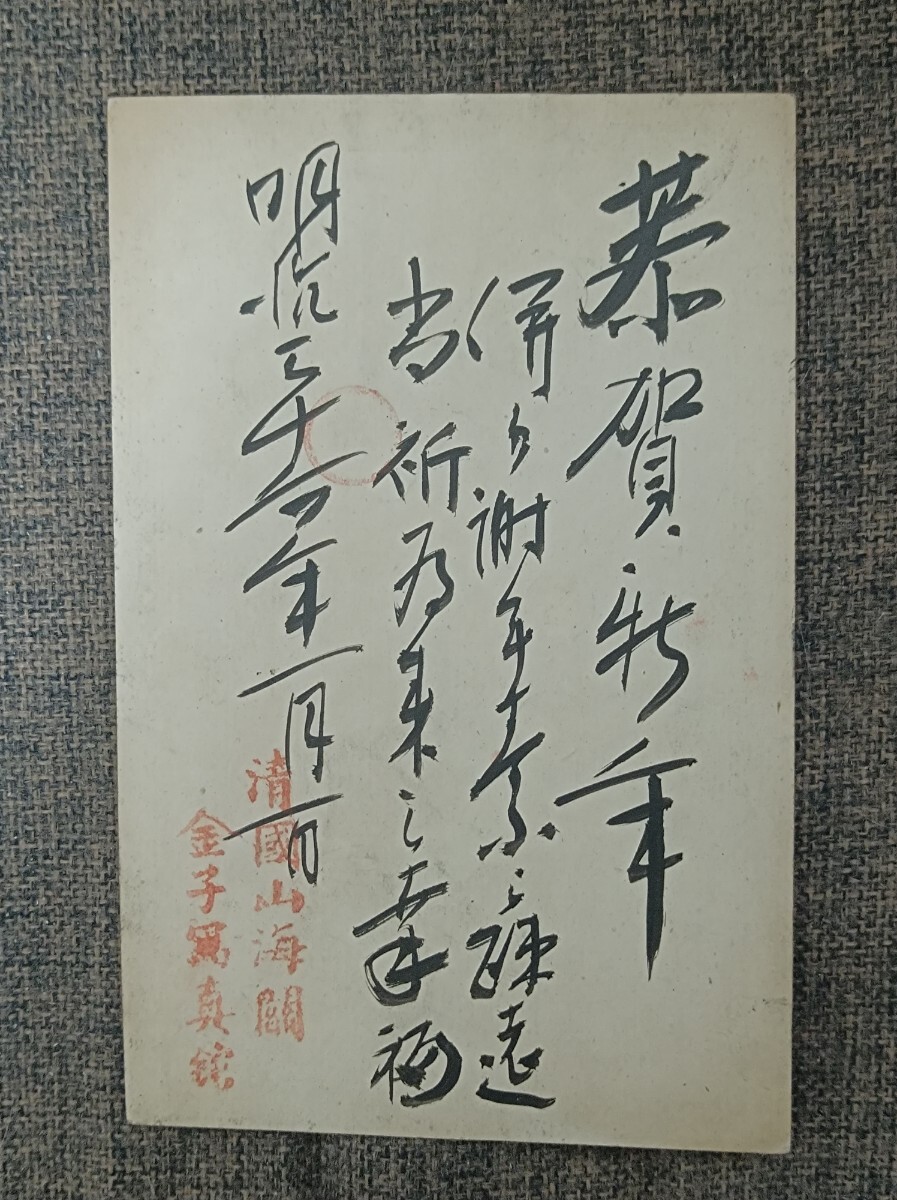 恭賀新年
併謝平素之疎遠
尚祈来之幸福
明治三十六年一月一日
清國山海關
金子寫真館